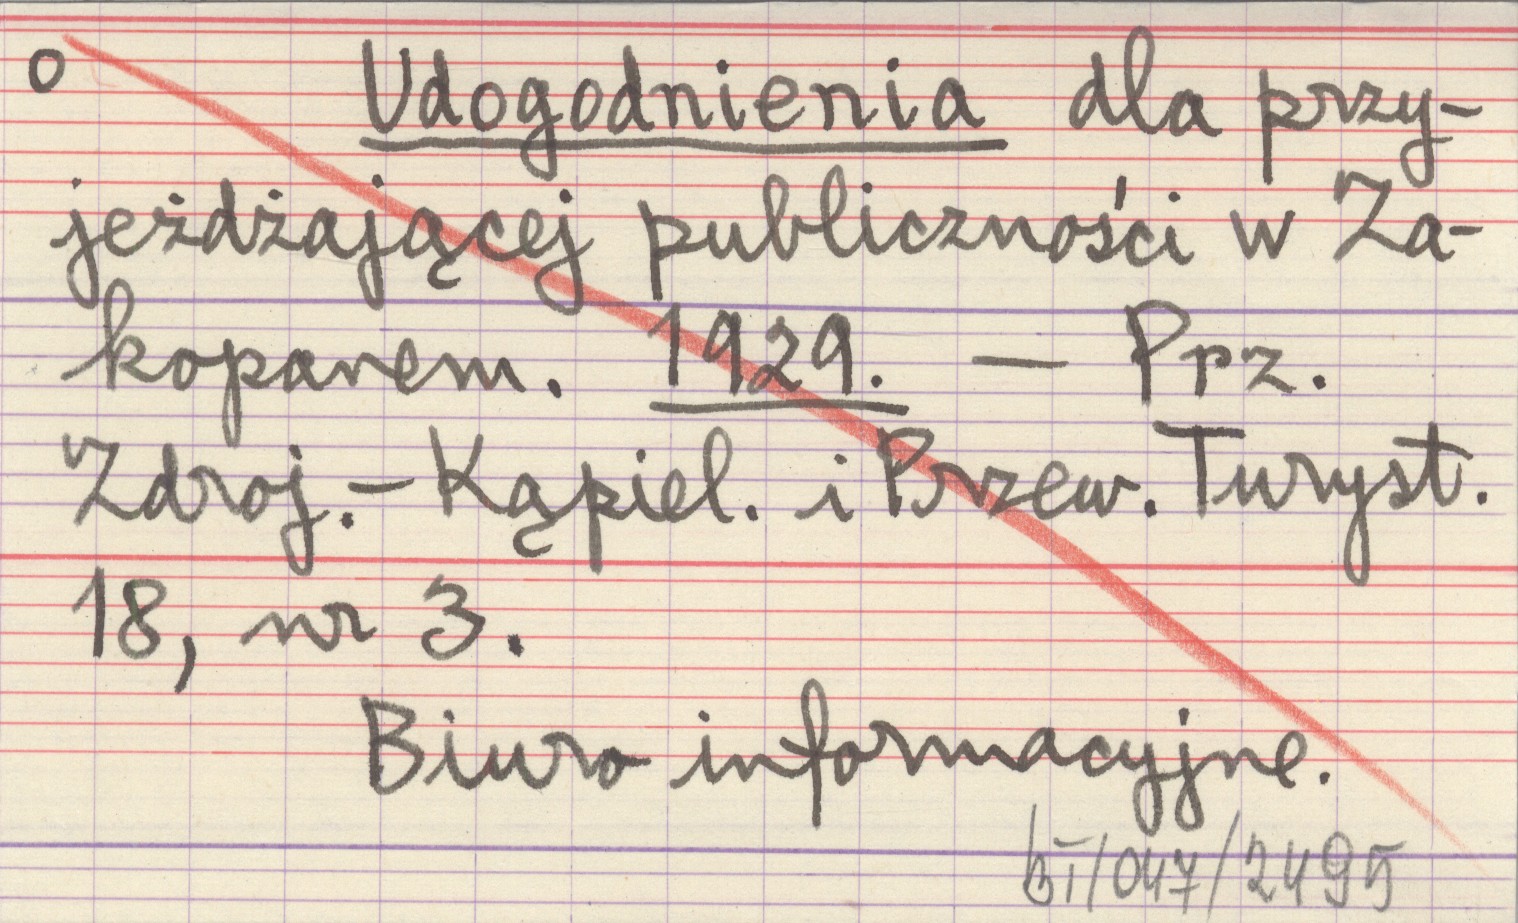 o Udogodnienia dla przy-
jeżdżającej publiczności w Za-
kopanem. 1929. — Prz.
Zdroj.-Kąpiel. i Przew. Turyst.
18, nr 3.
Biuro informacyjne.
BI/047/2495